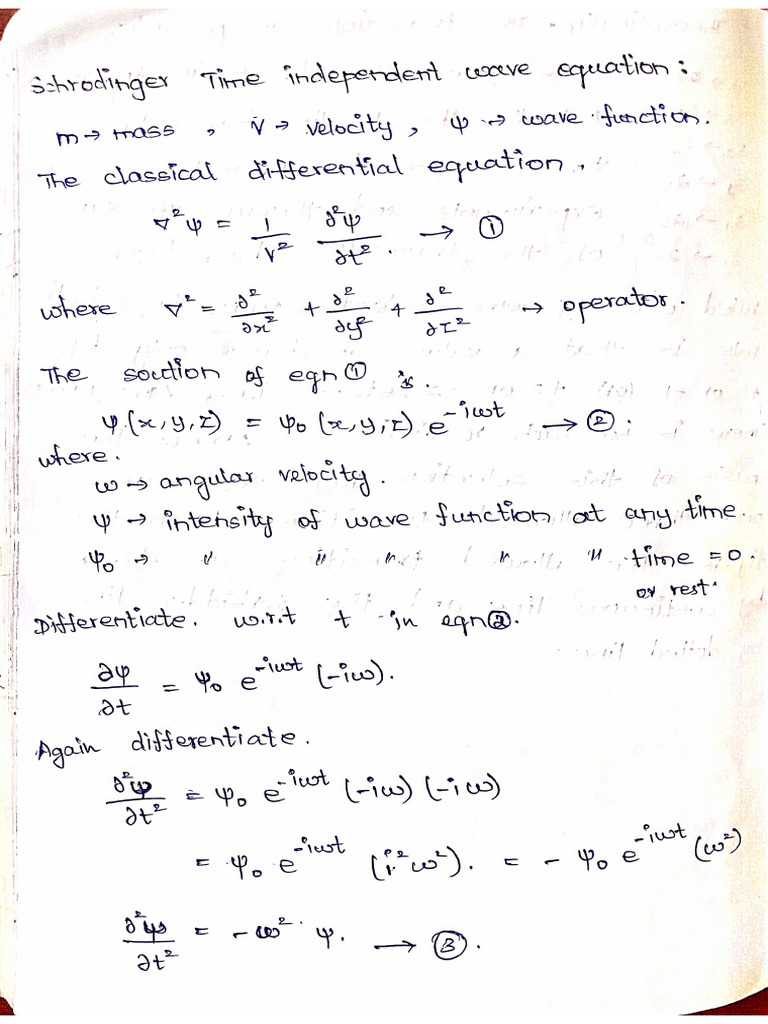 Schrodinger Time independent wave equation:
m → mass , V → velocity, ψ → wave function.
The classical differential equation,
∇²ψ = 1/V² ∂²ψ/∂t². → ①
where ∇² = ∂²/∂x² + ∂²/∂y² + ∂²/∂z² → operator.
The soution of eqn ① is.
ψ(x, y, z) = ψ₀ (x, y, z) e^-iωt → ②.
where.
ω → angular velocity.
ψ → intensity of wave function at any time.
ψ₀ → " " " " " time = 0.
or rest.
Differentiate. w.r.t t in eqn ②.
∂ψ/∂t = ψ₀ e^-iωt (-iω).
Again differentiate.
∂²ψ/∂t² = ψ₀ e^-iωt (-iω) (-iω)
= ψ₀ e^-iωt (i²ω²). = - ψ₀ e^-iωt (ω²)
∂²ψ/∂t² = -ω² ψ. → ③.